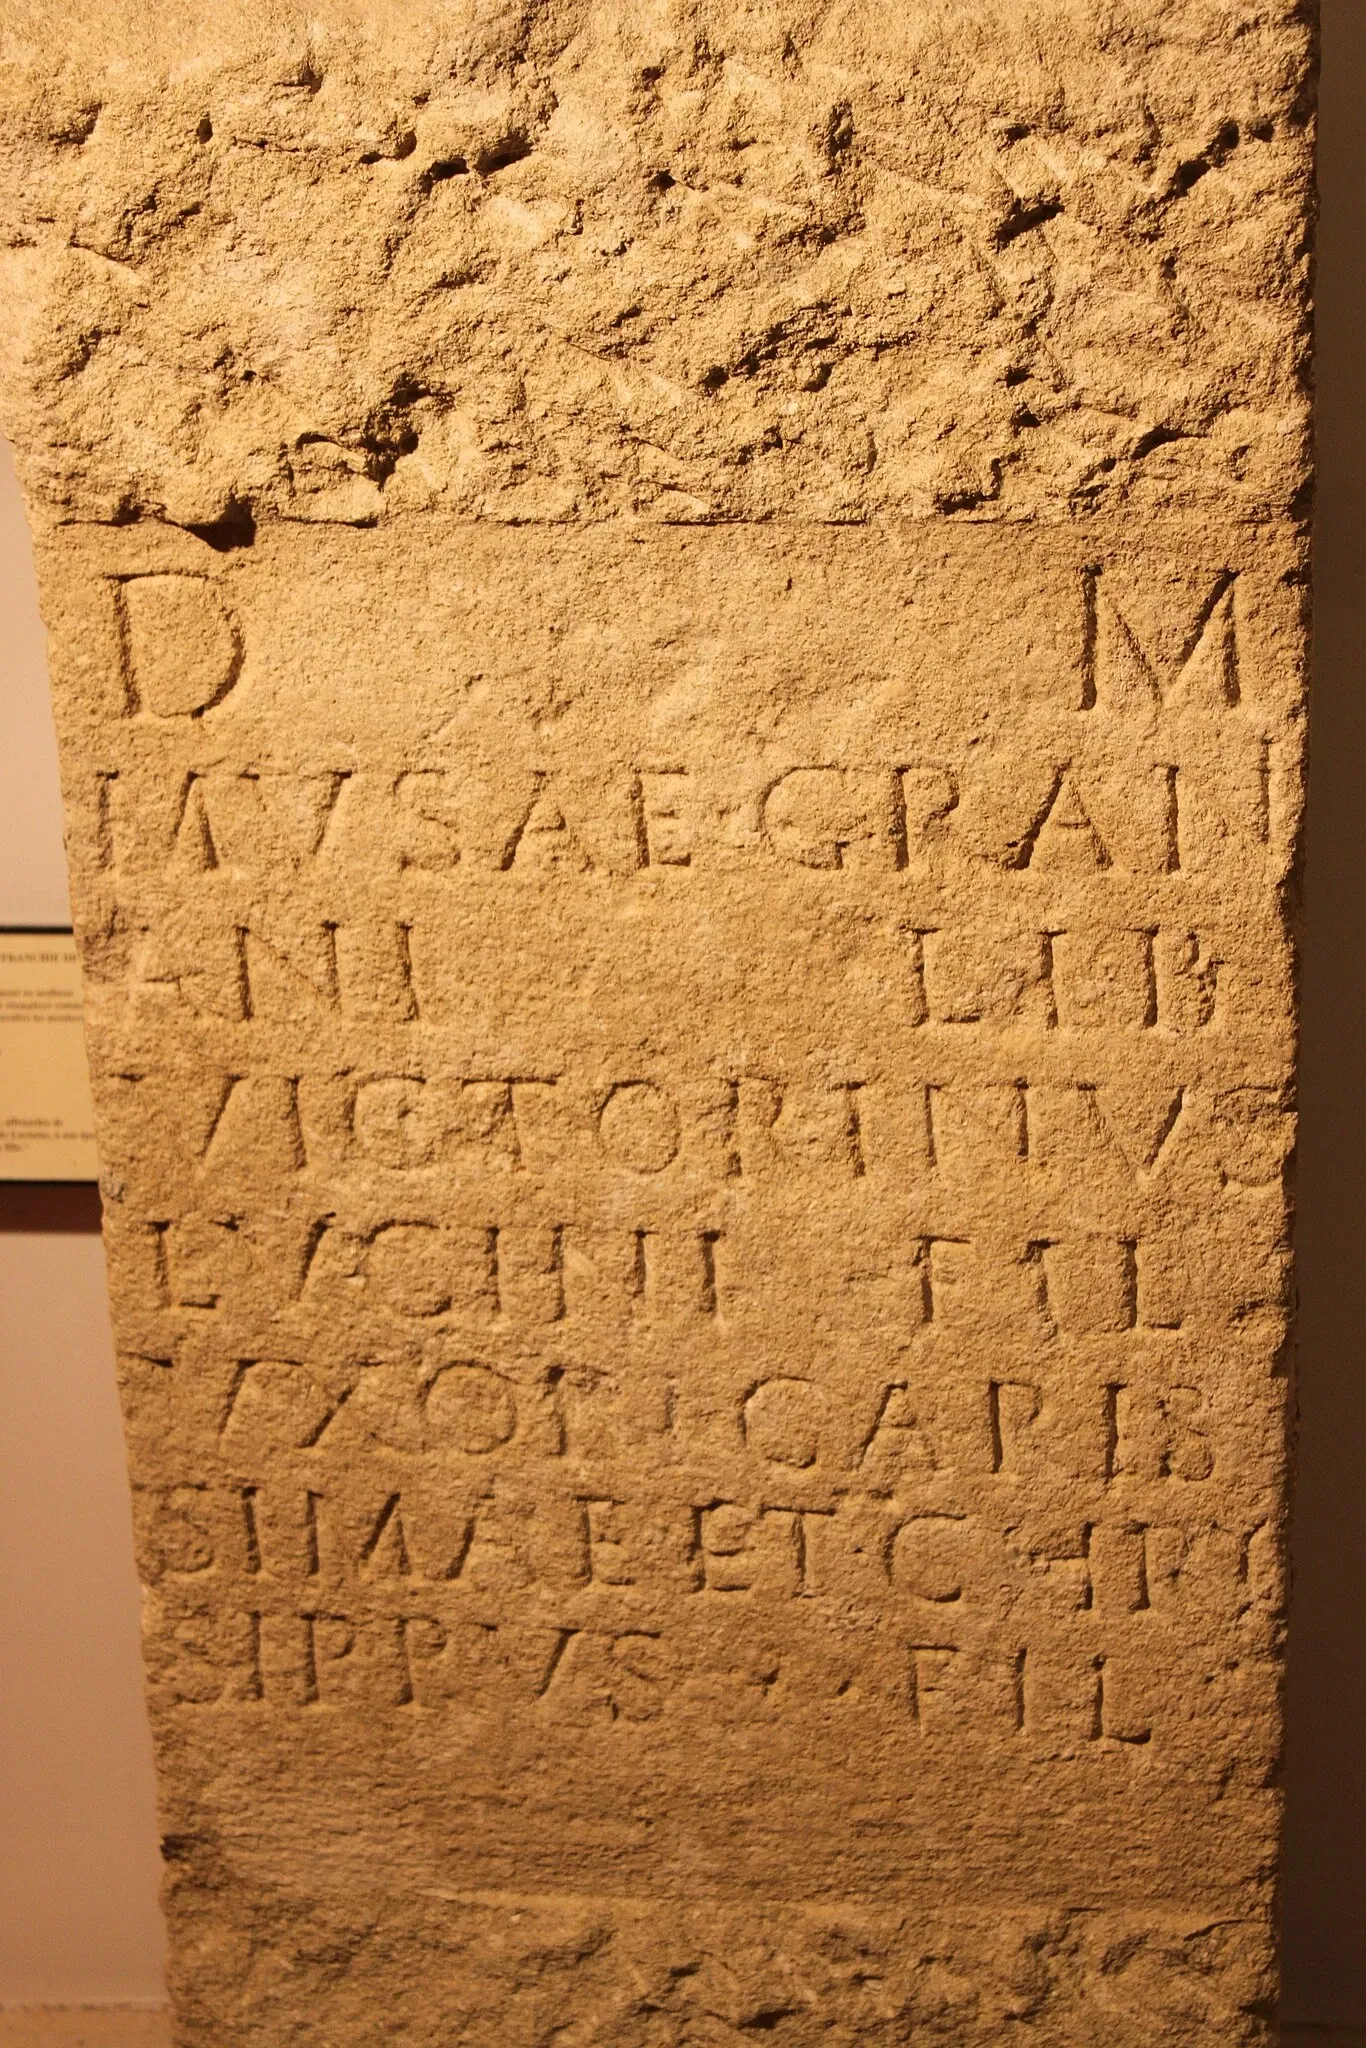 D M
MVSAE GRANI
ANI LIB
VICTORINVS
LVCINI FIL
VXORI CARIS
SIMAE ET CHRY
SIPPVS FIL